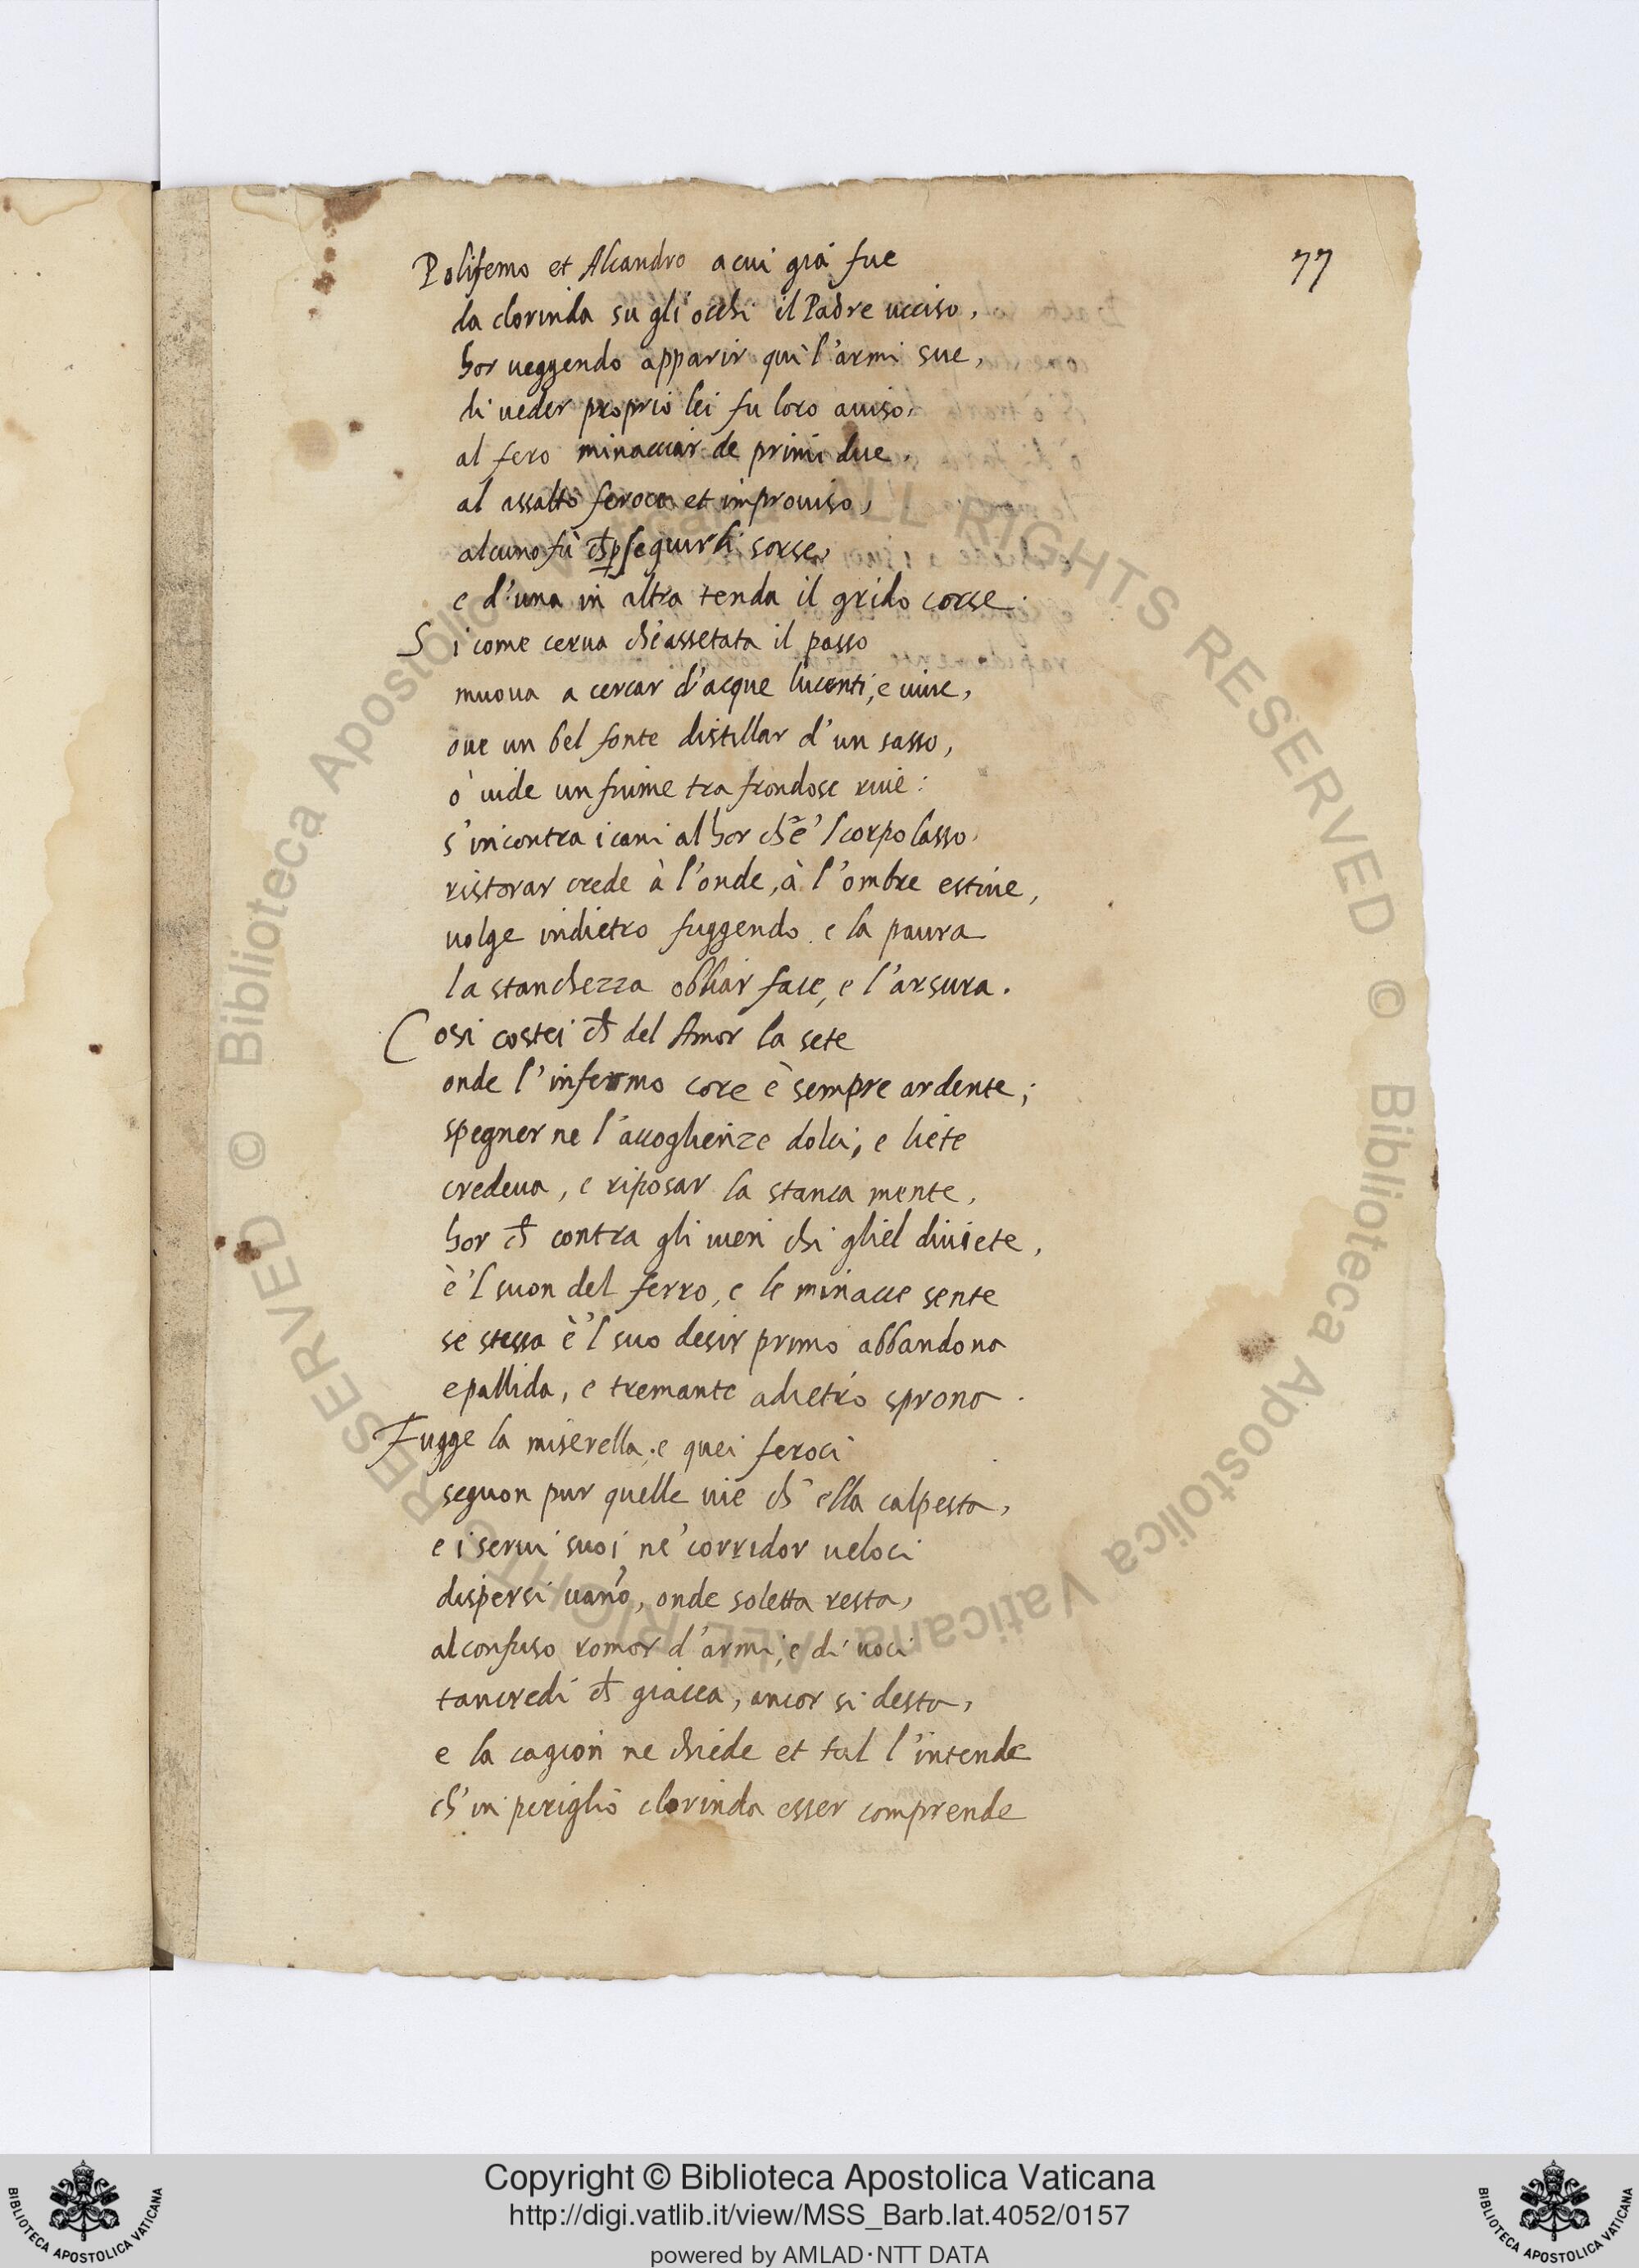 77
Polifemo et Alcandro a cui già fue
da clorinda su gli occhi il Padre ucciso,
hor veggendo apparir quì l'armi sue,
di veder proprio lei fu loro auiso,
al fero minacciar de primi due,
al assalto feroce et improuiso,
alcuno fù ch̃ ꝑseguirli sorse,
e d'una in altra tenda il grido corse.
Si come cerua ch'assetata il passo
muoua a cercar d'acque lucenti, e uiue,
oue un bel fonte distillar d'un sasso,
ò uide un fiume tra frondose riue:
s'incontra i cani al hor ch̃ e'l corpo lasso,
ristorar crede à l'onde, à l'ombre estiue,
uolge indietro fuggendo e la paura
la stanchezza obliar face, e l'arsura.
Cosi costei ch̃ del Amor la sete
onde l'infermo core è sempre ardente;
spegner ne l'accoglienze dolci, e liete
credeua, e riposar la stanca mente,
hor ch̃ contra gli uien chi gliel diuiete,
è 'l suon del ferro, e le minacce sente
se stessa è 'l suo desir primo abbandona
e pallida, e tremante adietro sprona.
Fugge la miserella, e quei feroci
seguon pur quelle uie ch'ella calpesta,
e i serui suoi ne' corridor ueloci
dispersi uano, onde soletta resta,
al confuso romor d'armi, e di uoci
tancredi ch̃ giacea, ancor si desta,
e la cagion ne chiede et tal l'intende
ch'in periglio clorinda esser comprende
© Biblioteca Apostolica Vaticana ALL RIGHTS RESERVED
© Biblioteca Apostolica Vaticana ALL RIGHTS RESERVED
Copyright © Biblioteca Apostolica Vaticana
http://digi.vatlib.it/view/MSS_Barb.lat.4052/0157
powered by AMLAD·NTT DATA
BIBLIOTECA APOSTOLICA VATICANA
BIBLIOTECA APOSTOLICA VATICANA